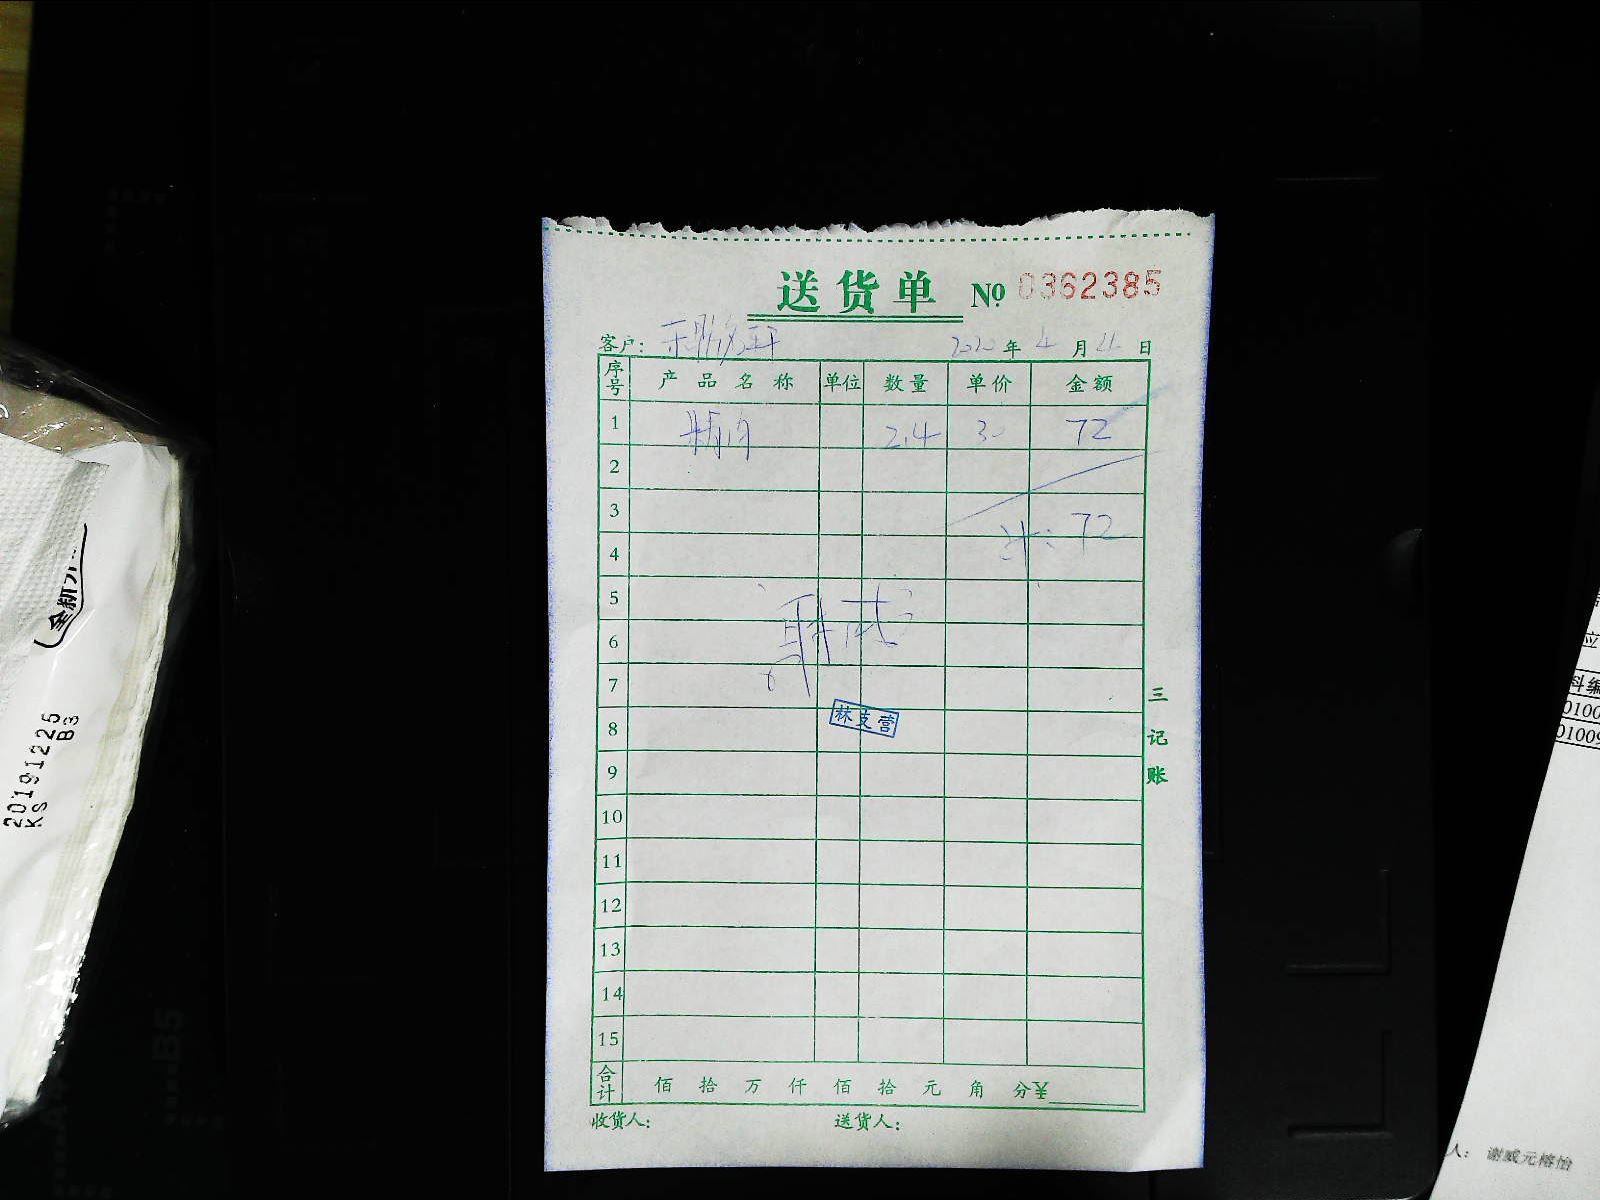 送货单 № 0362385
客户: 2020年4月21日
序号 产品名称 单位 数量 单价 金额
1 精肉 2.4 30 72
2
3
计: 72
4
5
6
7
三记账
林支营
8
9
10
11
12
13
14
15
合计 佰 拾 万 仟 佰 拾 元 角 分 ¥
收货人: 送货人:
20191225
KS B3
全新升
B5
应
料编
0100
01009
人: 谢威元榕怡